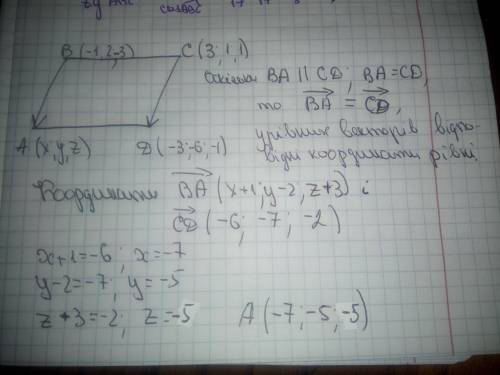 B(-1,2,-3) C(3;1,1)
Оскільки BA || CD; BA=CD,
то BA = CD,
A(x,y,z) D(-3;-6;-1)
у рівних векторів відпо-
відні координати рівні.
Координати BA(x+1;y-2,z+3) і
CD(-6; -7; -2)
x+1=-6; x=-7
y-2=-7; y=-5
z+3=-2; z=-5 A(-7;-5;-5)